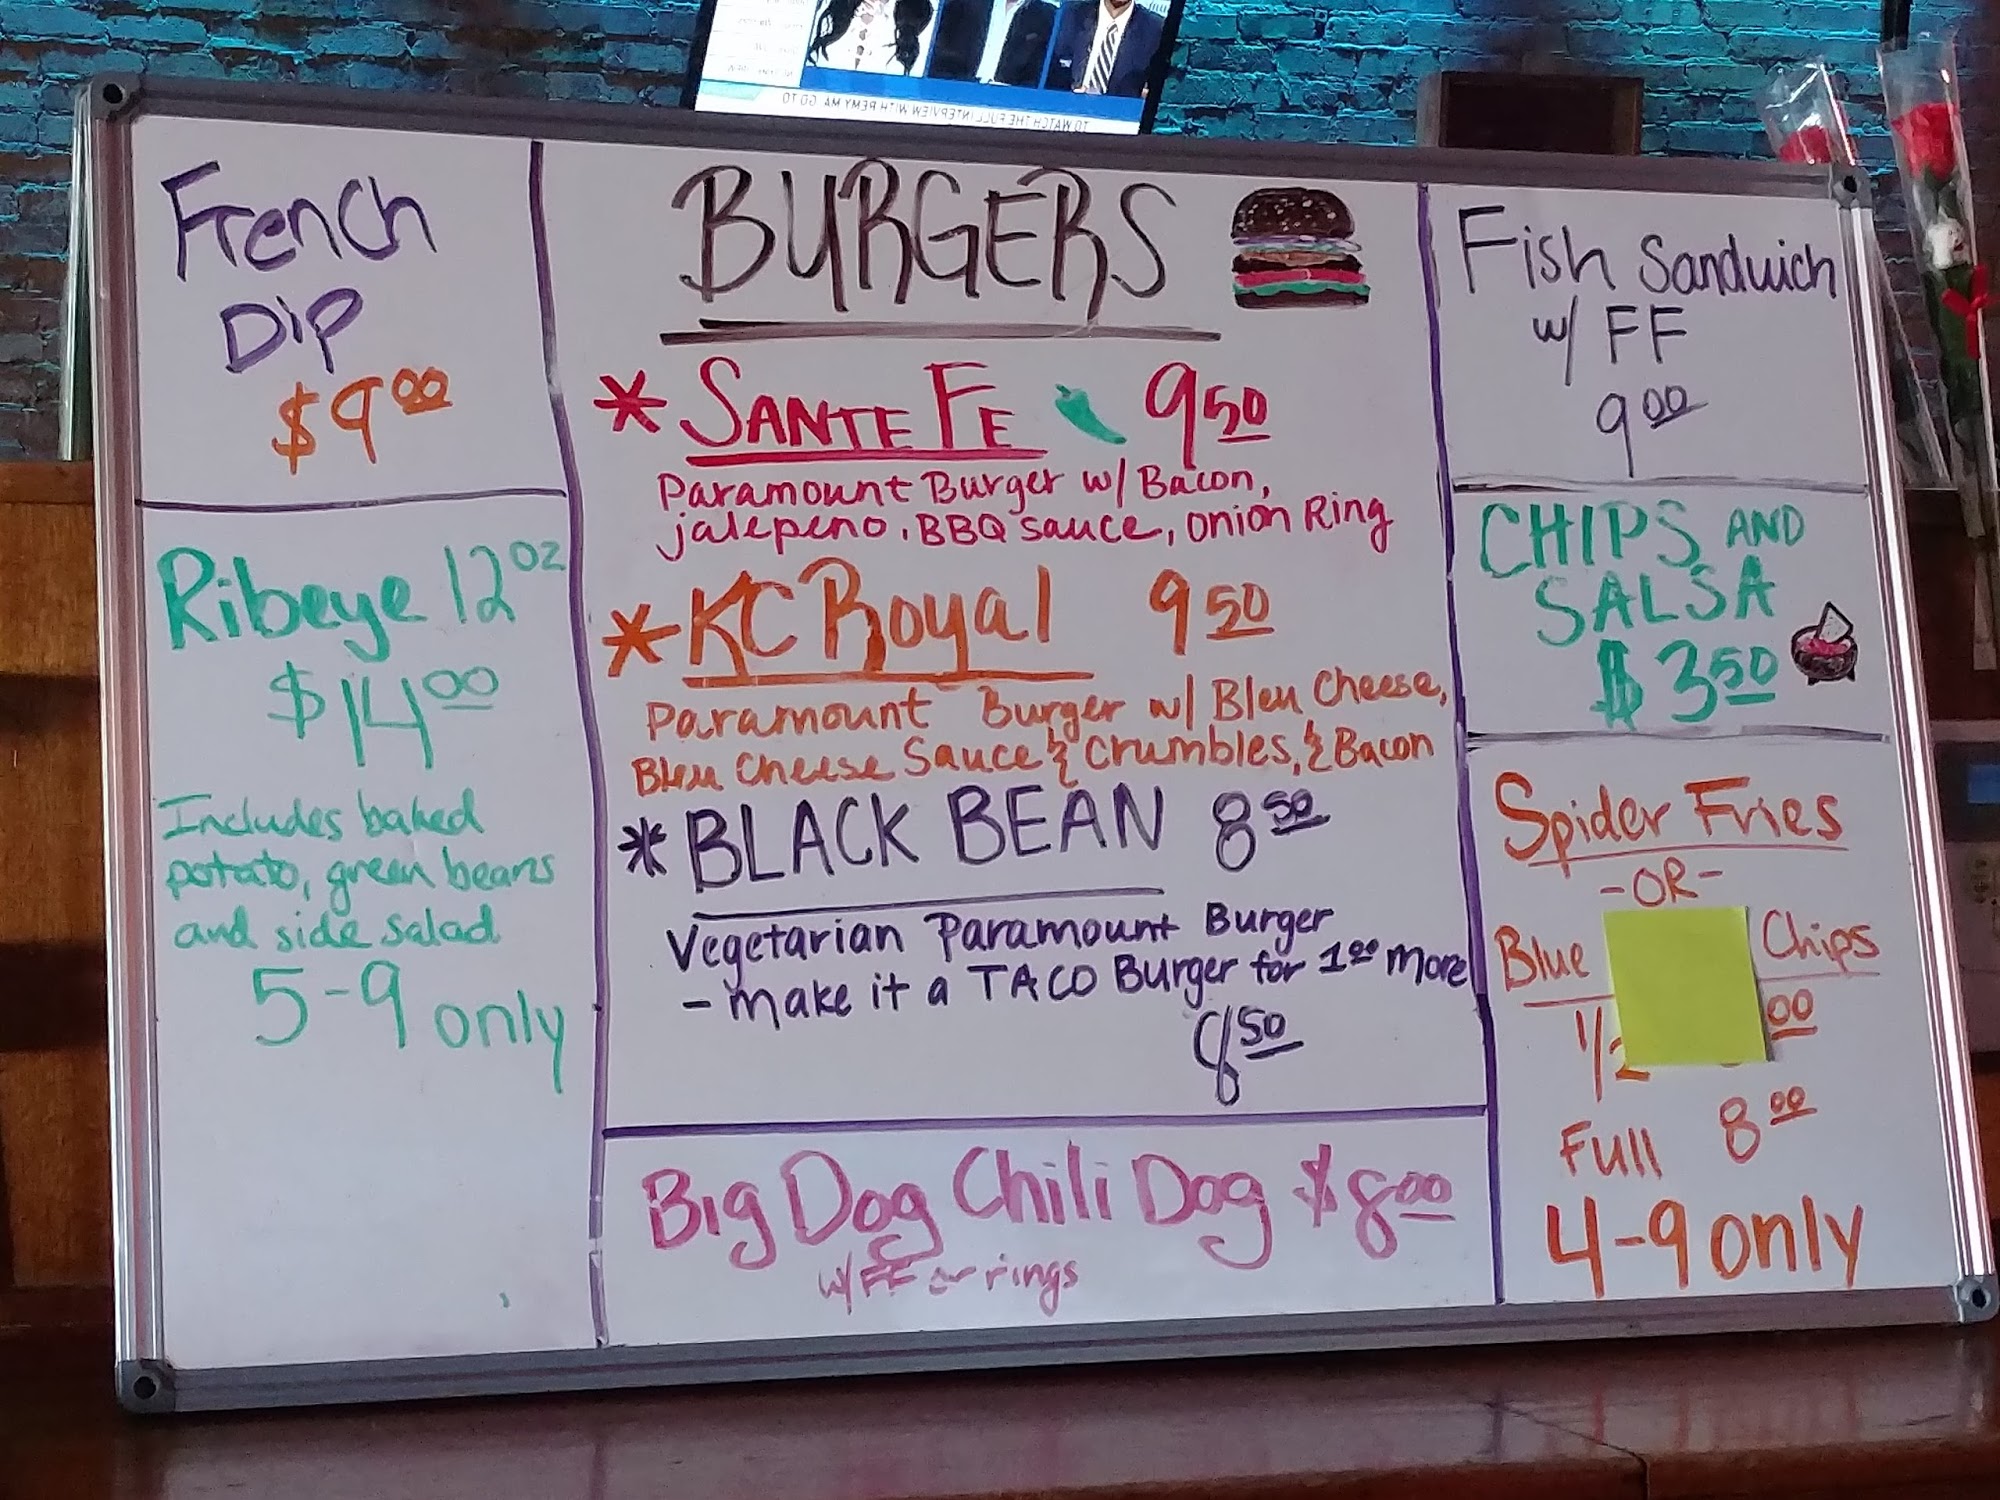 TO WATCH THE FULL INTERVIEW WITH REMY MA, GO TO
French
Dip
$9.00
Ribeye 12oz
$14.00
Includes baked
potato, green beans
and side salad
5-9 only
BURGERS
* SANTE FE 9.50
Paramount Burger w/ Bacon,
jalepeno, BBQ sauce, onion Ring
* KC Royal 9.50
Paramount Burger w/ Bleu Cheese,
Bleu Cheese Sauce & Crumbles, & Bacon
* BLACK BEAN 8.50
Vegetarian Paramount Burger
- make it a TACO Burger for 1.00 more
8.50
Big Dog Chili Dog $8.00
w/ FF or rings
Fish Sandwich
w/ FF
9.00
CHIPS AND
SALSA
$3.50
Spider Fries
-OR-
Blue Chips
1/2 00
Full 8.00
4-9 only